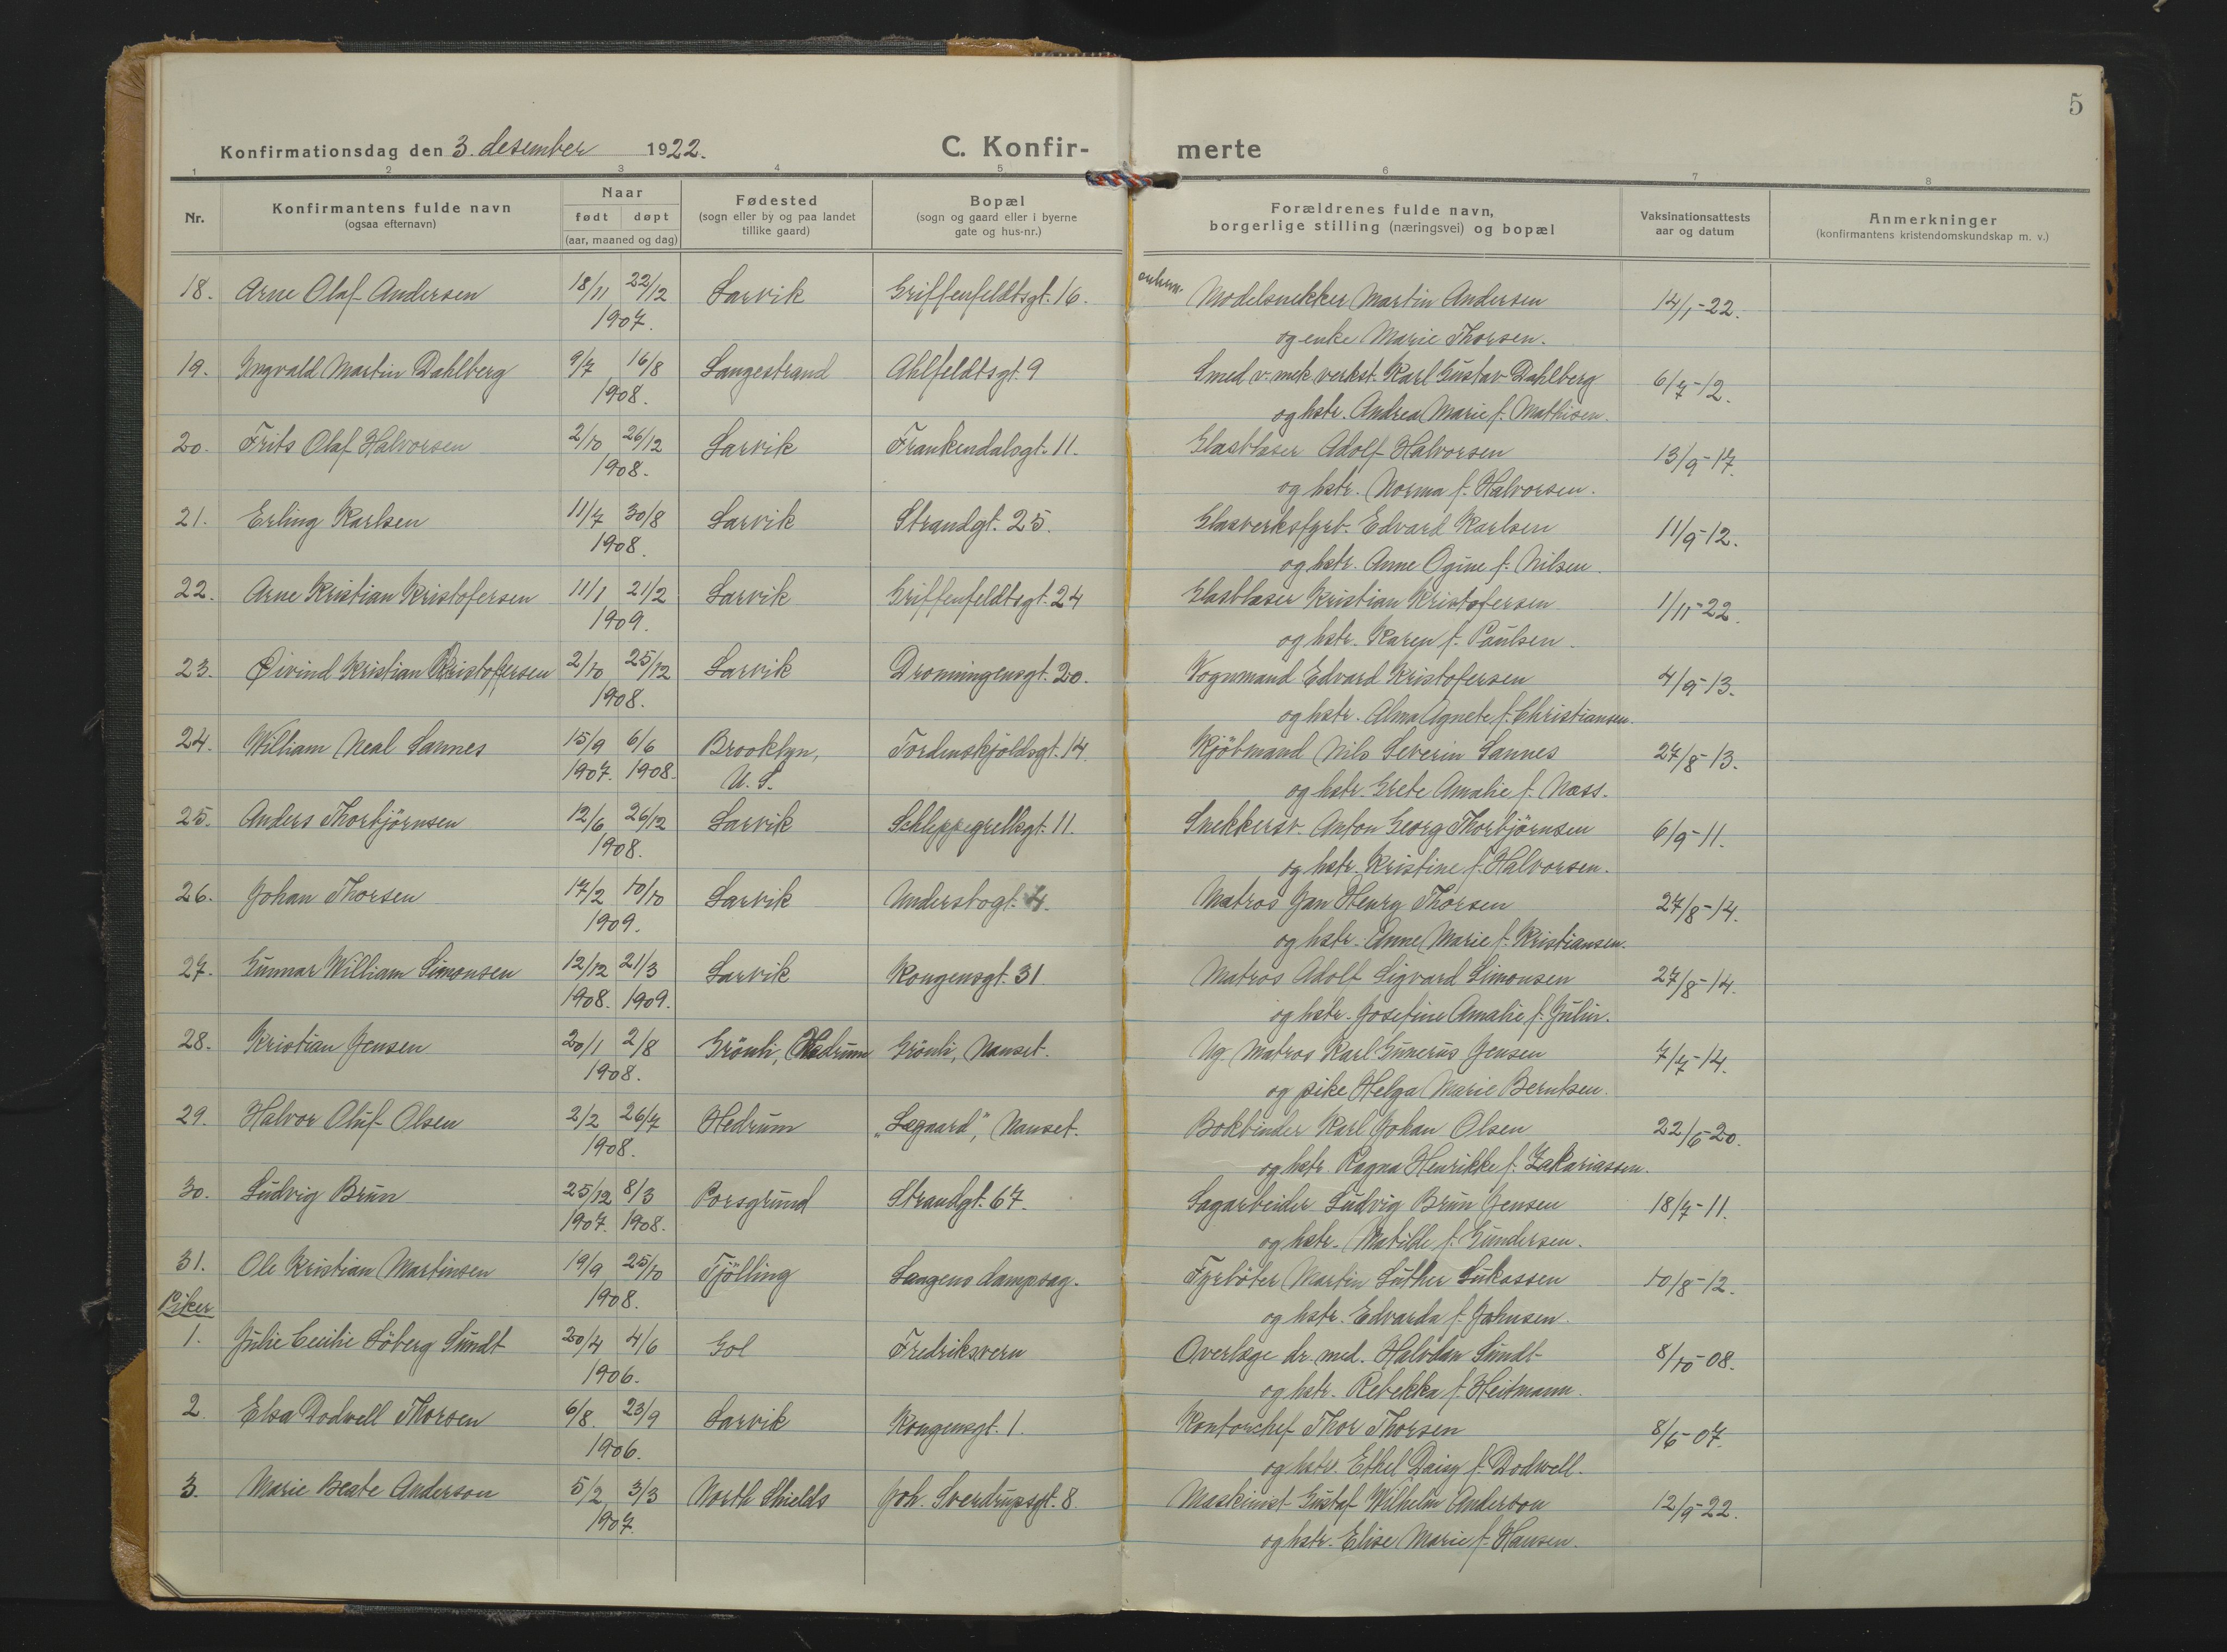 5
Konfirmationsdag den 3. desember 1922. C. Konfir- merte
1 2 3 4 5 6 7 8
Nr. Konfirmantens fulde navn (ogsaa efternavn) Naar født døpt (aar, maaned og dag) Fødested (sogn eller by og paa landet tillike gaard) Bopæl (sogn og gaard eller i byerne gate og hus-nr.) Forældrenes fulde navn, borgerlige stilling (næringsvei) og bopæl Vaksinationsattests aar og datum Anmerkninger (konfirmantens kristendomskundskap m. v.)
18. Arne Olaf Andersen 18/11 22/12 Larvik Griffenfeldtsgt. 16. Modelsnekker Martin Andersen 14/1-22.
1907. og enke Marie Thorsen.
19. Ingvald Martin Dahlberg 9/7 16/8 Langestrand Ahlfeldtsgt. 9 Smed v. mek. verkst. Karl Gustav Dahlberg 6/7-12.
1908. og hstr. Andrea Marie f. Mathisen.
20. Frits Olaf Halvorsen 2/10 26/12 Larvik Frankendalsgt. 11. Glasblaser Adolf Halvorsen 13/9-17.
1908. og hstr. Norma f. Halvorsen.
21. Erling Karlsen 11/7 30/8 Larvik Strandgt. 25. Glasverksfyrb. Edvard Karlsen 11/9-12.
1908. og hstr. Anne Ogine f. Nilsen.
22. Arne Kristian Kristofersen 11/1 21/2 Larvik Griffenfeldtsgt. 24 Glasblaser Kristian Kristofersen 1/11-22.
1909. og hstr. Karen f. Paulsen.
23. Øivind Kristian Kristoffersen 2/10 25/12 Larvik Dronningensgt. 20. Vognmand Edvard Kristofersen 4/9-13.
1908. og hstr. Alma Agnete f. Christiansen.
24. William Neal Sannes 15/9 6/6 Brooklyn, Tordenskjoldsgt. 14. Kjöbmand Nils Severin Sannes 27/8-13.
1907. 1908. U. S. og hstr. Grete Amalie f. Næss.
25. Anders Thorbjörnsen 12/6 26/12 Larvik Schleppegrellsgt. 11. Snekkersv. Anton Georg Thorbjörnsen 6/9-11.
1908. og hstr. Kristine f. Halvorsen.
26. Johan Thorsen 17/2 10/10 Larvik Undersbogt. 4. Matros Jan Henry Thorsen 27/8-14.
1909. og hstr. Anne Marie f. Kristiansen.
27. Gunnar William Simonsen 12/12 21/3 Larvik Kongensgt. 31 Matros Adolf Sigvard Simonsen 27/8-14.
1908. 1909. og hstr. Josefine Amalie f. Julin.
28. Kristian Jensen 20/1 2/8 Grönli, Hedrum Grönli, Nanset. Ug. Matros Karl Gunerius Jensen 7/7-14.
1908. og pike Helga Marie Berntsen.
29. Halvor Oluf Olsen 2/2 26/7 Hedrum „Lægaard", Nanset. Bokbinder Karl Johan Olsen 22/6-20.
1908. og hstr. Ragna Henrikke f. Zakariassen.
30. Ludvig Brun 25/12 8/3 Porsgrund Strandgt. 67. Sagarbeider Ludvig Brun Jensen 18/7-11.
1907. 1908. og hstr. Matilde f. Gundersen.
31. Ole Kristian Martinsen 19/9 25/10 Tjölling Laagens dampsag. Fyrböter Martin Luther Lukassen 10/8-12.
1908. og hstr. Edvarda f. Johnsen.
Piker
1. Julie Cecilie Söberg Sundt 20/4 4/6 Gol Fredriksvern Overlæge dr. med. Halvdan Sundt 8/10-08.
1906. og hstr. Rebekka f. Heitmann.
2. Elsa Dodwell Thorsen 6/8 23/9 Larvik Kongensgt. 1. Kontorchef Thor Thorsen 8/6-07.
1906. og hstr. Ethel Daisy f. Dodwell.
3. Marie Beate Anderson 5/2 3/3 North Shields Joh. Sverdrupsgt. 8. Maskinist Gustaf Wilhelm Anderson 12/9-22.
1907. og hstr. Elise Marie f. Hansen.